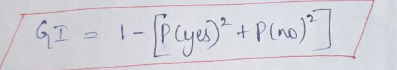 GI = 1 - [P(yes)² + P(no)²]